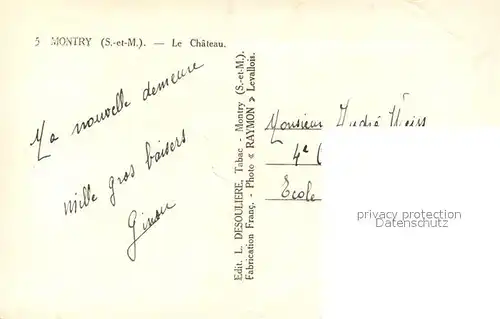 5 MONTRY (S.-et-M.). — Le Château.
Ma nouvelle demeure
mille gros baisers
Edit. L. DESOULIERE, Tabac - Montry (S.-et-M.).
Fabrication Franç. - Photo « RAYMON » Levallois.
Monsieur André
4e (
Ecole
privacy protection
(No Watermark)